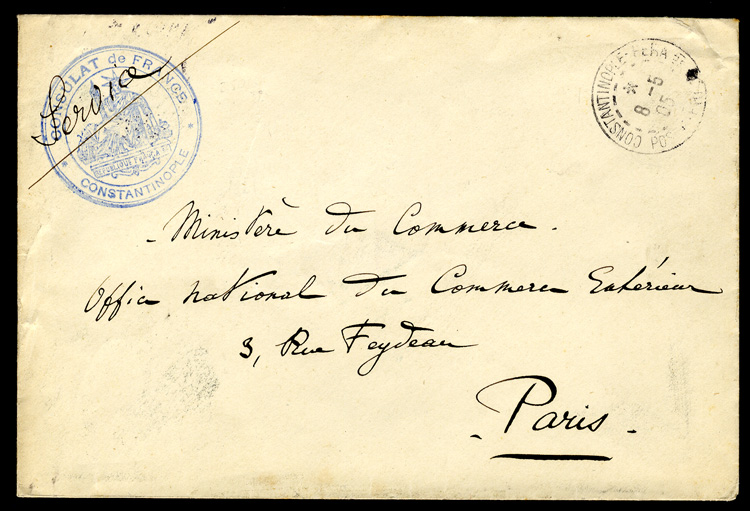 CONSULAT de FRANCE
CONSTANTINOPLE
Service
CONSTANTINOPLE-PERA
8 - 5
05
- Ministère du Commerce.
Office National du Commerce Extérieur
3, Rue Feydeau
- Paris -